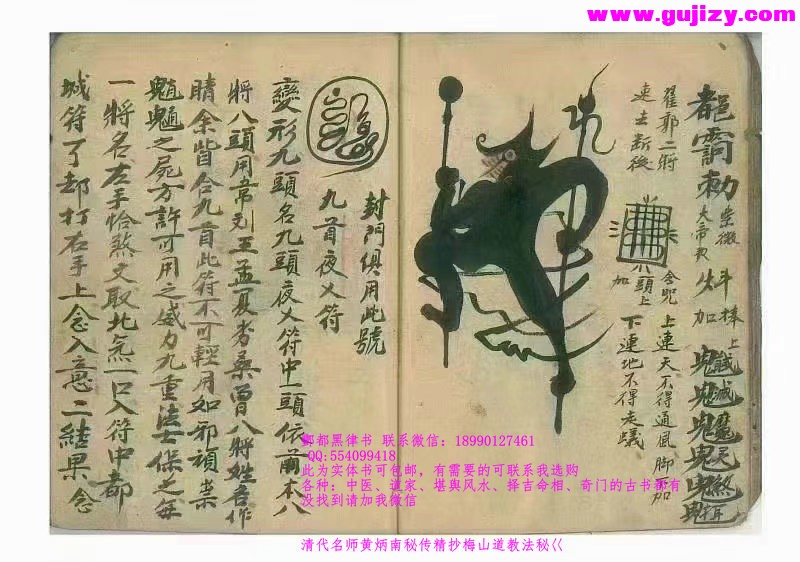 www.gujizy.com
都霄勅
紫微
大帝
翟郭二將
速去斷後
加
念咒
八頭上
加
棒上
上連天不得通風脚加
下連地不得走蟻
封門俱用此號
九首夜乂符
變形九頭名九頭夜乂符中一頭依前本八
將八頭用常
八將姓名作
睛余皆合九首此符不可輕用如邪
之屍方許可用之威力九重法士保之每
一將名左手恰煞文取北炁一口入符中都
城符了却打右手上念入意二結果念
酆都黑律书 联系微信：18990127461
QQ:554099418
此为实体书可包邮，有需要的可联系我选购
各种：中医、道家、堪舆风水、择吉命相、奇门的古书都有
没找到请加我微信
清代名师黄炳南秘传精抄梅山道教法秘巜